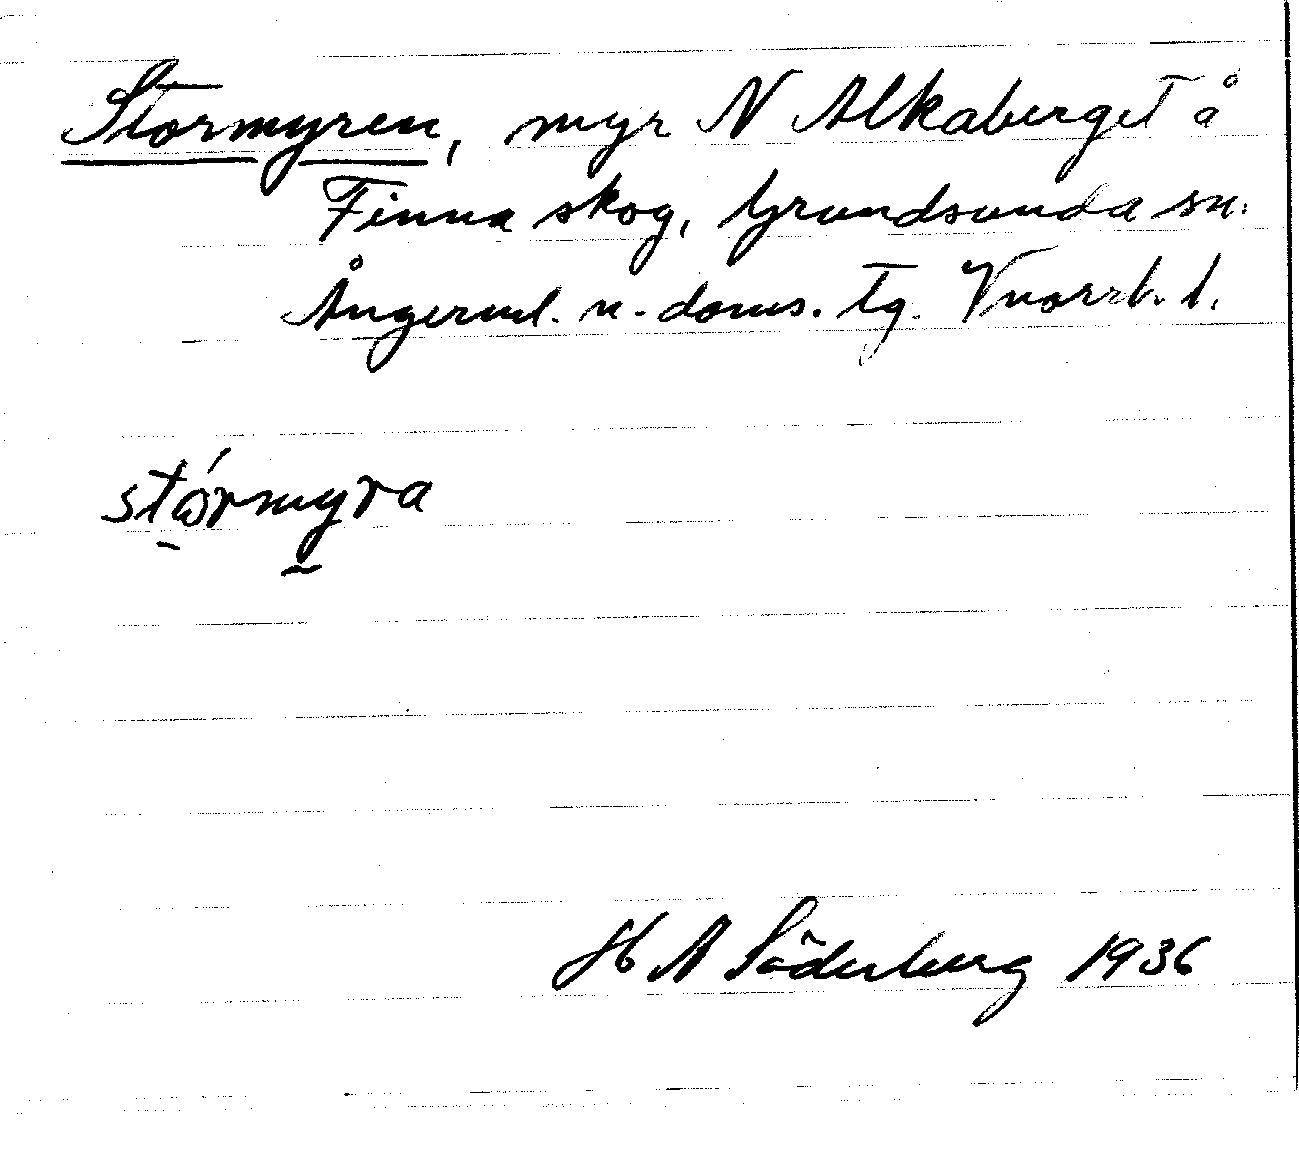 Stormyren, myr N Alkaberget å
Finna skog, Grundsunda sn.
Ångerml. n. doms. tg. Vnorrl. l.
stórmyra
H A Söderberg 1936